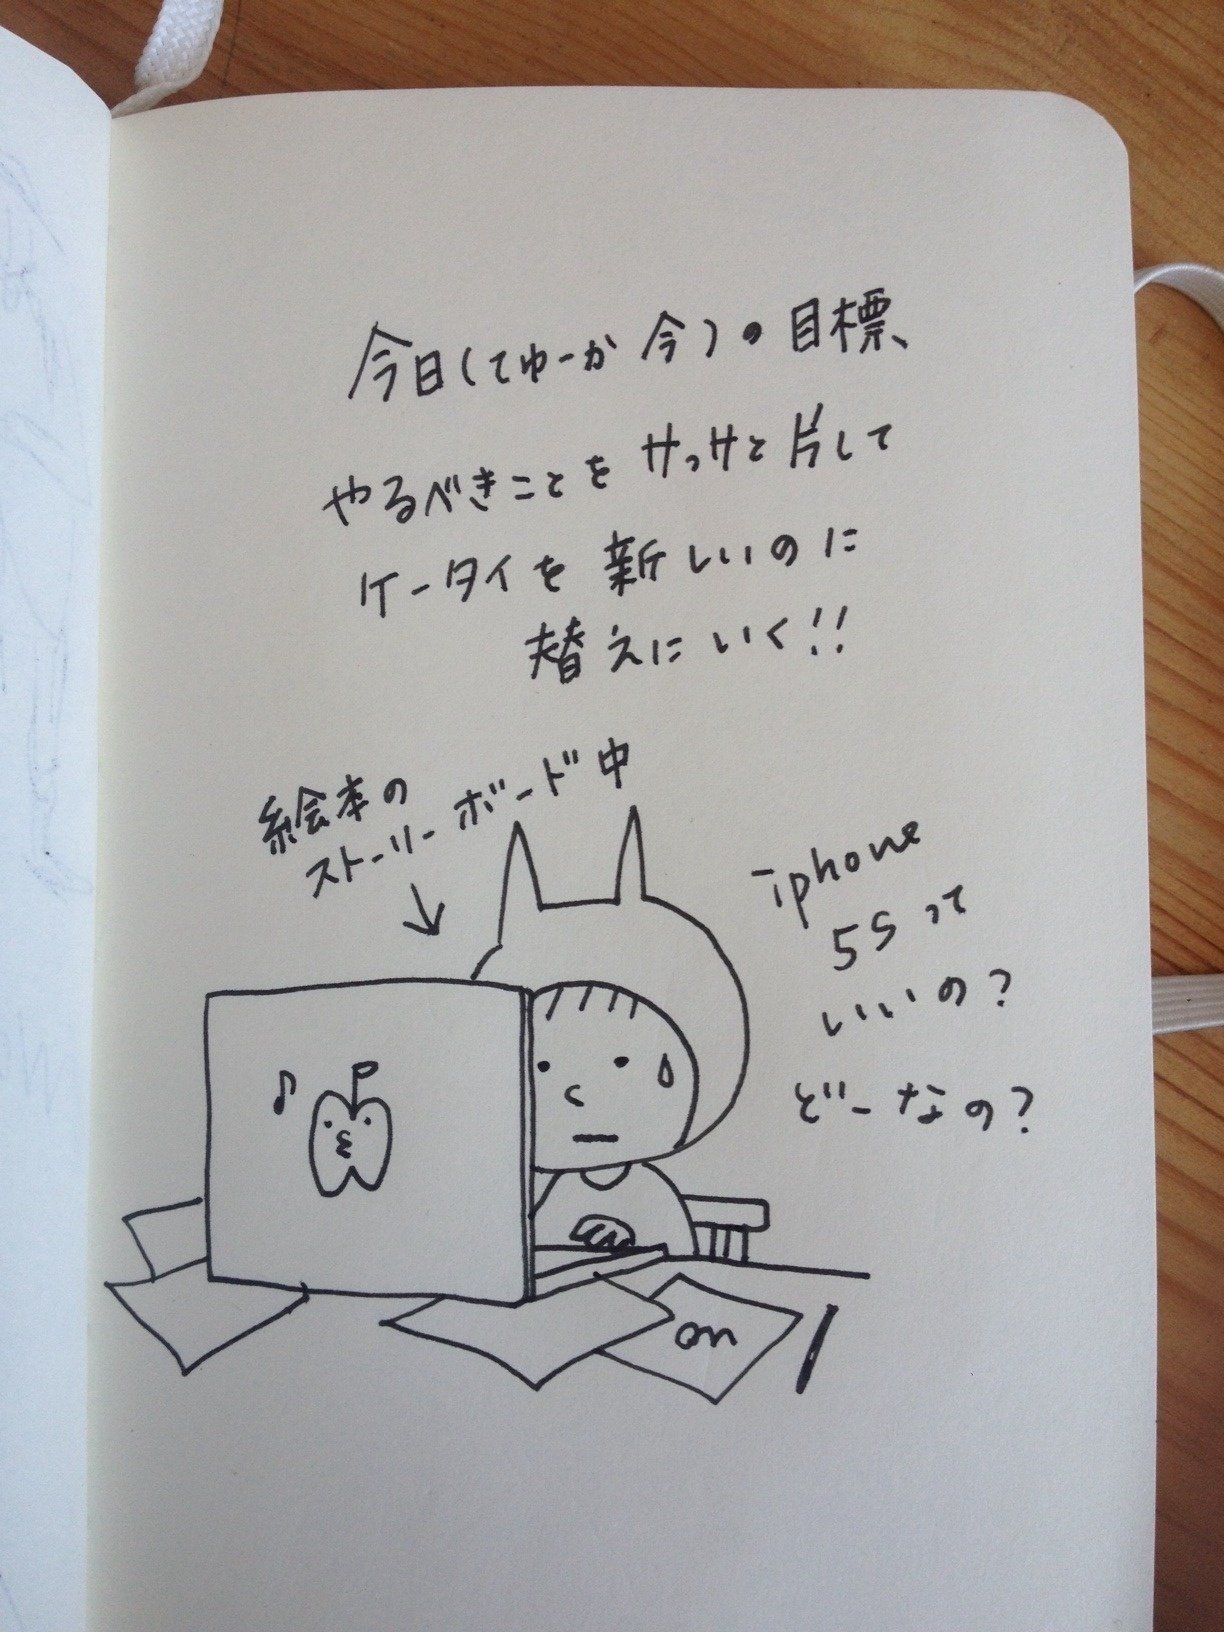 今日(てゆーか 今)の目標、
やるべきことをサッサと片して
ケータイを新しいのに
替えにいく!!
絵本の
ストーリーボード中
iphone
5Sって
いいの?
どーなの?
on